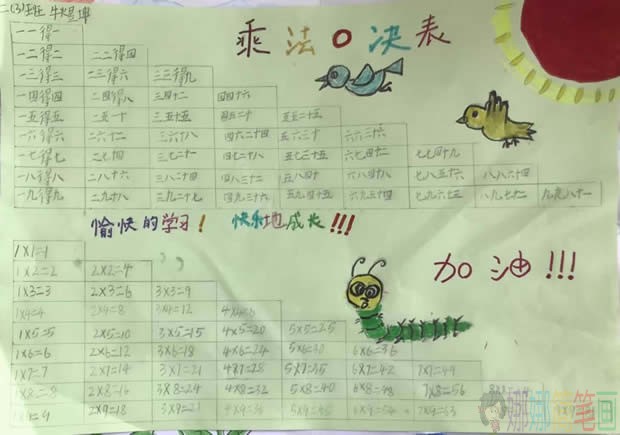 二(3)班
乘法口决表
一一得一
一二得二 二二得四
一三得三 二三得六 三三得九
一四得四 二四得八 三四十二 四四十六
一五得五 二五一十 三五十五 四五二十 五五二十五
一六得六 二六十二 三六十八 四六二十四 五六三十 六六三十六
一七得七 二七十四 三七二十一 四七二十八 五七三十五 六七四十二 七七四十九
一八得八 二八十六 三八二十四 四八三十二 五八四十 六八四十八 七八五十六 八八六十四
一九得九 二九十八 三九二十七 四九三十六 五九四十五 六九五十四 七九六十三 八九七十二 九九八十一
愉快的学习! 快乐地成长!!!
加油!!!
1×1=1
1×2=2 2×2=4
1×3=3 2×3=6 3×3=9
1×4=4 2×4=8 3×4=12 4×4=16
1×5=5 2×5=10 3×5=15 4×5=20 5×5=25
1×6=6 2×6=12 3×6=18 4×6=24 5×6=30 6×6=36
1×7=7 2×7=14 3×7=21 4×7=28 5×7=35 6×7=42 7×7=49
1×8=8 2×8=16 3×8=24 4×8=32 5×8=40 6×8=48 7×8=56
2×9=18 3×9=21 4×9=36 5×9=45 6×9=54 7×9=63
娜娜笔画